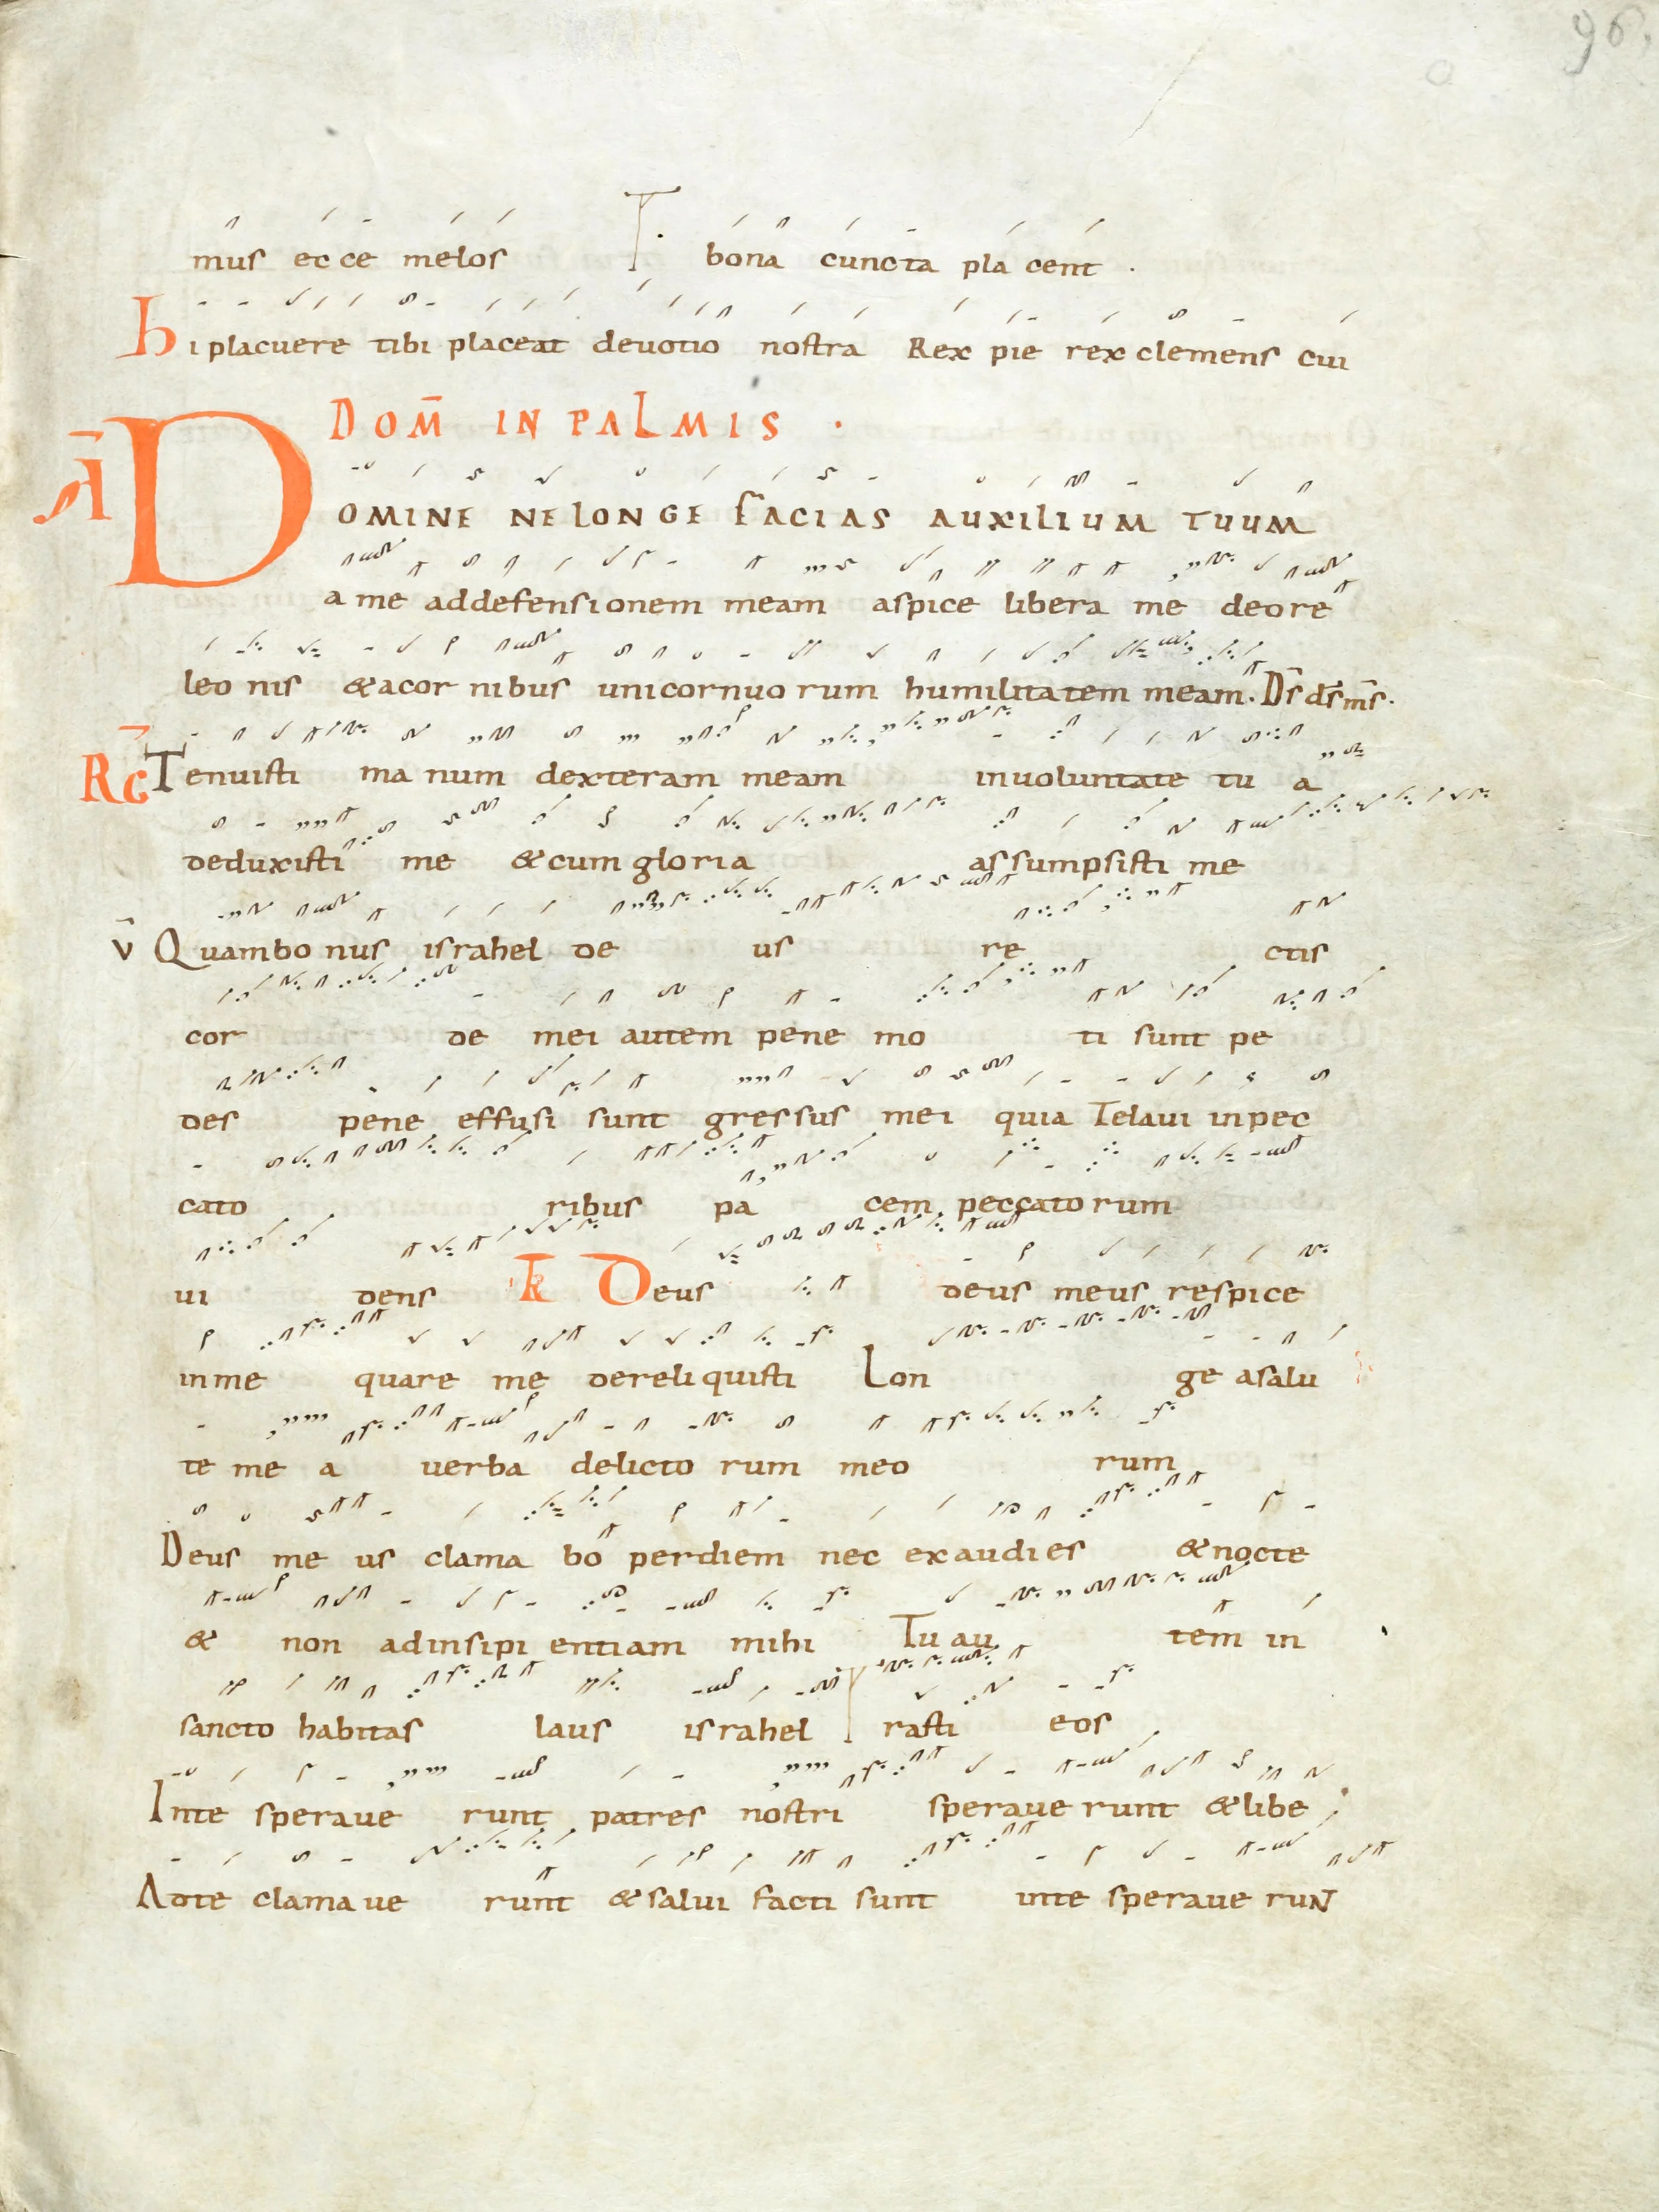 96.
mus ecce melos T. bona cuncta placent.
hi placuere tibi placeat deuotio nostra Rex pie rex clemens cui
DOM̄ IN PALMIS.
Ā DOMINE NE LONGE FACIAS AUXILIUM TUUM
a me ad defensionem meam aspice libera me de ore
leonis & a cornibus unicornuorum humilitatem meam. D̄s d̄s m̄s.
R̄G Tenuisti manum dexteram meam in uoluntate tua
deduxisti me & cum gloria assumpsisti me
v̄ Quam bonus israhel deus rectis
corde mei autem pene moti sunt pe
des pene effusi sunt gressus mei quia zelaui in pec
catoribus pacem peccatorum
uidens TR Deus deus meus respice
in me quare me dereliquisti Longe a salu
te mea uerba delictorum meorum
Deus meus clamabo per diem nec exaudies & nocte
& non ad insipientiam mihi Tu autem in
sancto habitas laus israhel rasti eos
In te speraue runt patres nostri speraue runt & libe
Ad te clamauerunt & salui facti sunt in te speraue runt